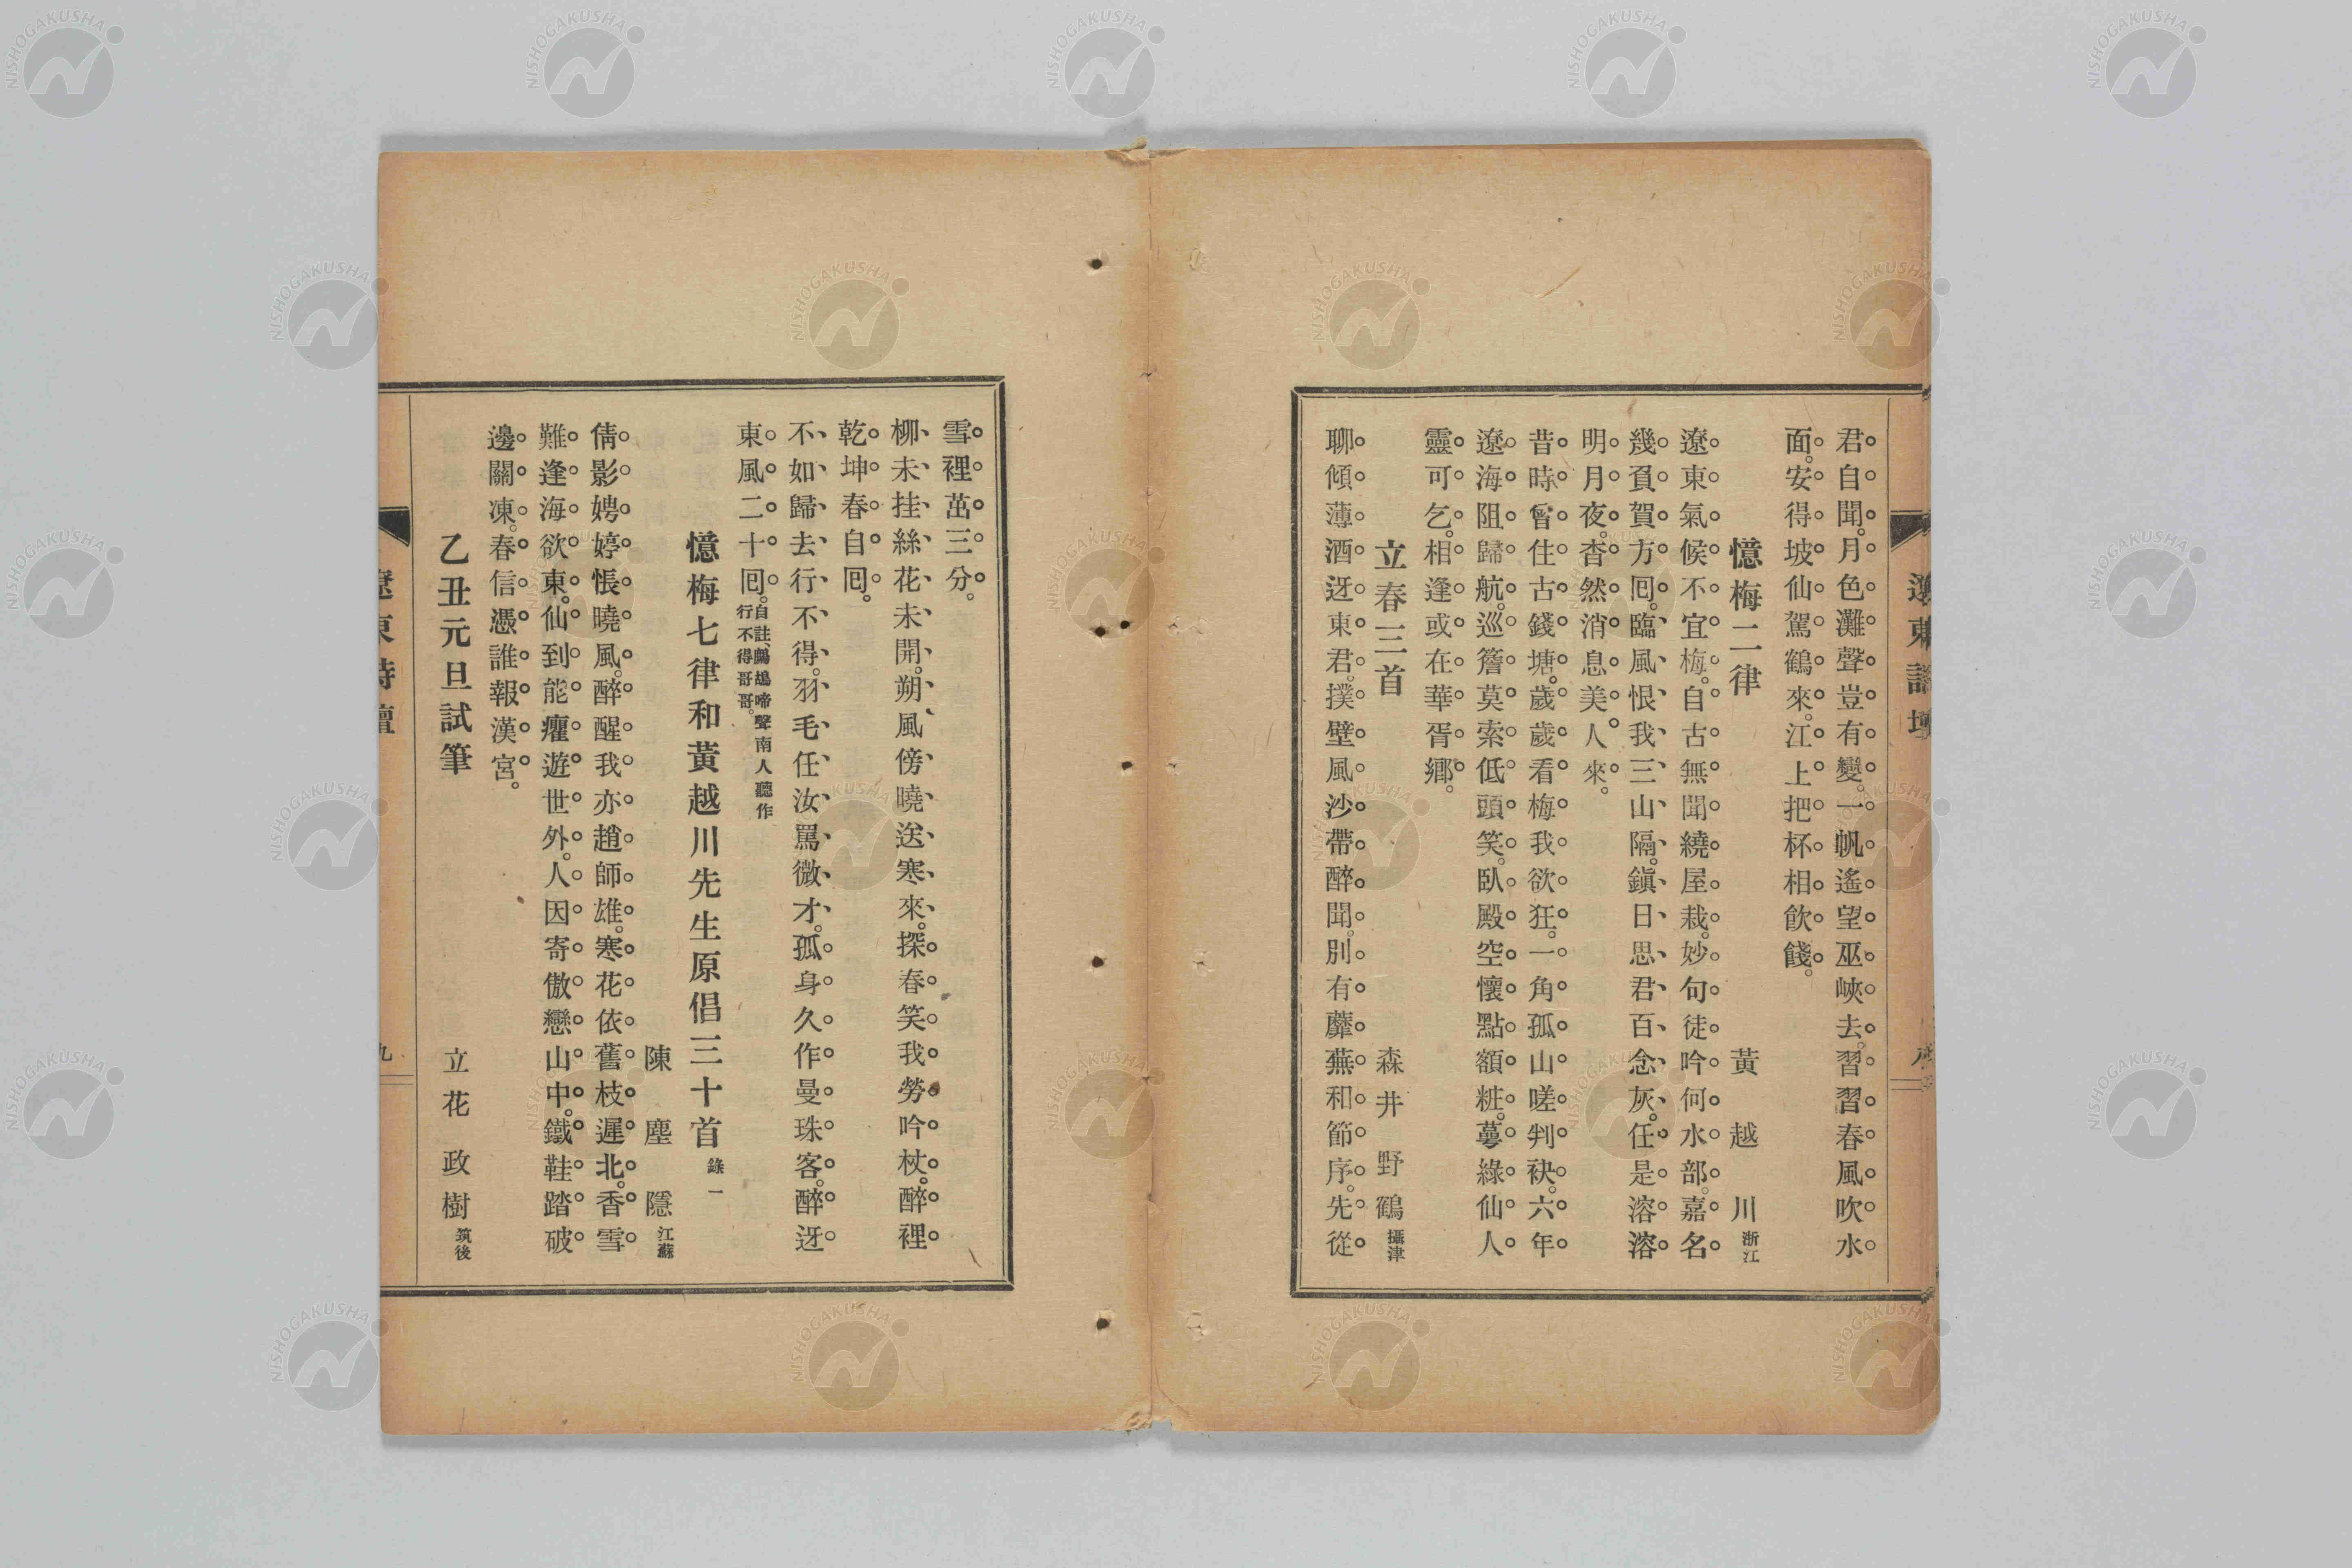 遼東詩壇
君自聞。月色灘聲豈有變。一帆遙望巫峽去。習習春風吹水
面。安得坡仙駕鶴來。江上把杯相飮餞。
憶梅二律　黃越川 浙江
遼東氣候不宜梅。自古無聞繞屋栽。妙句徒吟何水部。嘉名
幾負賀方囘。臨風恨我三山隔。鎭日思君百念灰。任是溶溶
明月夜。杳然消息美人來。
昔時曾住古錢塘。歲歲看梅我欲狂。一角孤山嗟判袂。六年
遼海阻歸航。巡簷莫索低頭笑。臥殿空懷點額粧。蕚綠仙人
靈可乞。相逢或在華胥鄕。
立春三首　森井野鶴 攝津
聊傾薄酒迓東君。撲壁風沙帶醉聞。別有蘼蕪和節序。先從
雪裡茁三分。
柳未挂絲花未開。朔風傍曉送寒來。探春笑我勞吟杖。醉裡
乾坤春自囘。
不如歸去行不得。羽毛任汝罵微才。孤身久作曼珠客。醉迓
東風二十囘。自註、鷓鴣啼聲南人聽作行不得哥哥。
憶梅七律和黃越川先生原倡三十首 錄一
陳塵隱 江蘇
倩影娉婷悵曉風。醉醒我亦趙師雄。寒花依舊枝遲北。香雪
難逢海欲東。仙到能癯遊世外。人因寄傲戀山中。鐵鞋踏破
邊關凍。春信憑誰報漢宮。
乙丑元旦試筆　立花政樹 筑後
遼東詩壇
九